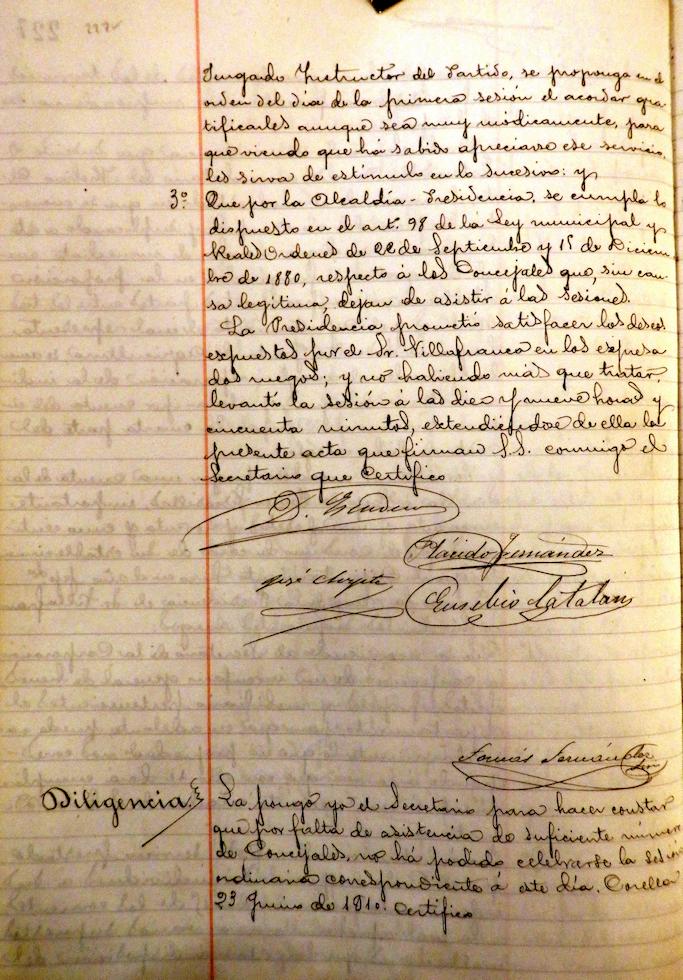 Juzgado Instructor del Partido, se proponga en el
orden del día de la primera sesión el acordar gra-
tificarles aunque sea muy módicamente, para
que viendo que há sabido apreciarse ese servicio,
les sirva de estímulo en lo sucesivo: y
3.º Que por la Alcaldía-Presidencia, se cumpla lo
dispuesto en el art.º 98 de la Ley municipal y
Reales Ordenes de 22 de Septiembre y 15 de Diciem-
bre de 1880, respecto á los Concejales que, sin cau-
sa legítima, dejan de asistir á las sesiones.
La Presidencia prometió satisfacer los deseos
expuestos por el Sr. Villafranca en los expresa
dos ruegos; y no habiendo más que tratar,
levantó la sesión á las diez y nueve horas y
cincuenta minutos, extendiéndose de ella la
presente acta que firman S.S. conmigo el
Secretario que certifico
Plácido Fernández
José
Eusebio Catalán
Tomás Fernán
Diligencia. La pongo yo el Secretario para hacer constar
que por falta de asistencia de suficiente número
de Concejales, no há podido celebrarse la sesion
ordinaria correspondiente á este día. Corella
23 Junio de 1910. Certifico